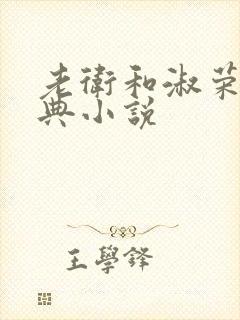 老衛和淑荣
典小说
王學鋒